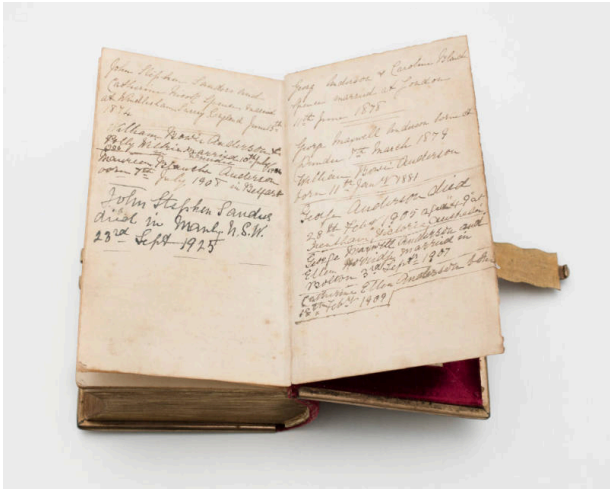 John Stephen Sandes and
Catherine Spencer married
at Windlesham Surrey England June 15th
1874
William Bowie Anderson &
Polly Wilkie Married 10th
Maurice Anderson
born 7th July 1908 in Belfast
John Stephen Sandes
died in Manly N.S.W.
23rd Sept 1925
Georg Anderson & Caroline
Spencer married at London
11th June 1873
George Maxwell Anderson born at
Dundee 7th March 1874
William Bowie Anderson
born 11th Jan 1881
George Anderson died
28th Feby 1907 aged
Victoria Australia
George Maxwell Anderson and
Ellen married in
Bolton 3rd Septr 1907
Catherine Ellen Anderson born
18th Feby 1909